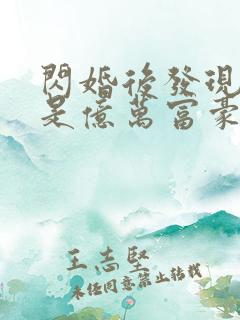 閃婚後發現
是億萬富豪
王志堅
未經同意禁止轉載